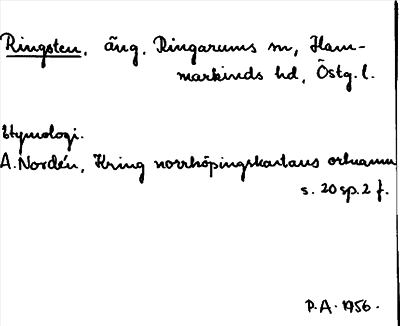 Ringsten, äng, Ringarums sn, Ham-
markinds hd, Östg. l.
Etymologi.
A. Nordén, Kring norrköpingskartans ortnamn
s. 20 sp. 2 f.
P.A. 1956.